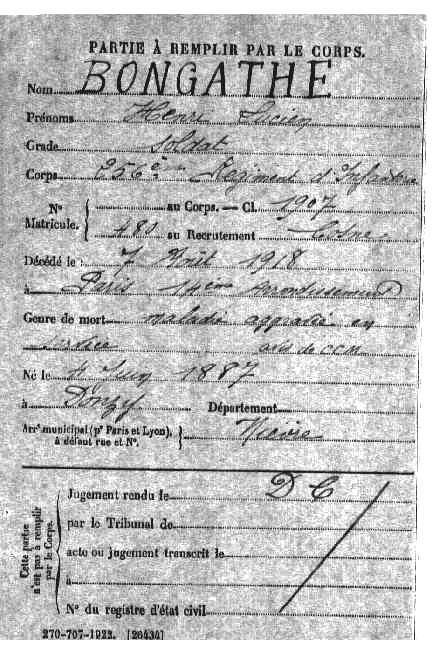 PARTIE À REMPLIR PAR LE CORPS.
Nom BONGATHE
Prénoms Henri Lucien
Grade soldat
Corps 256ème Régiment d'Infanterie
N° Matricule. { au Corps. — Cl. 1907
481 au Recrutement Cosne
Décédé le 7 Août 1918
à Paris 14ème Arrondissement
Genre de mort maladie aggravée en
service avis de CCM
Né le 4 Juin 1887
à Donzy Département
Arrt municipal (pr Paris et Lyon), à défaut rue et N°. } Nièvre
Cette partie n'est pas à remplir par le Corps.
Jugement rendu le D C
par le Tribunal de
acte ou jugement transcrit le
à
N° du registre d'état civil
270-707-1922. [26434]